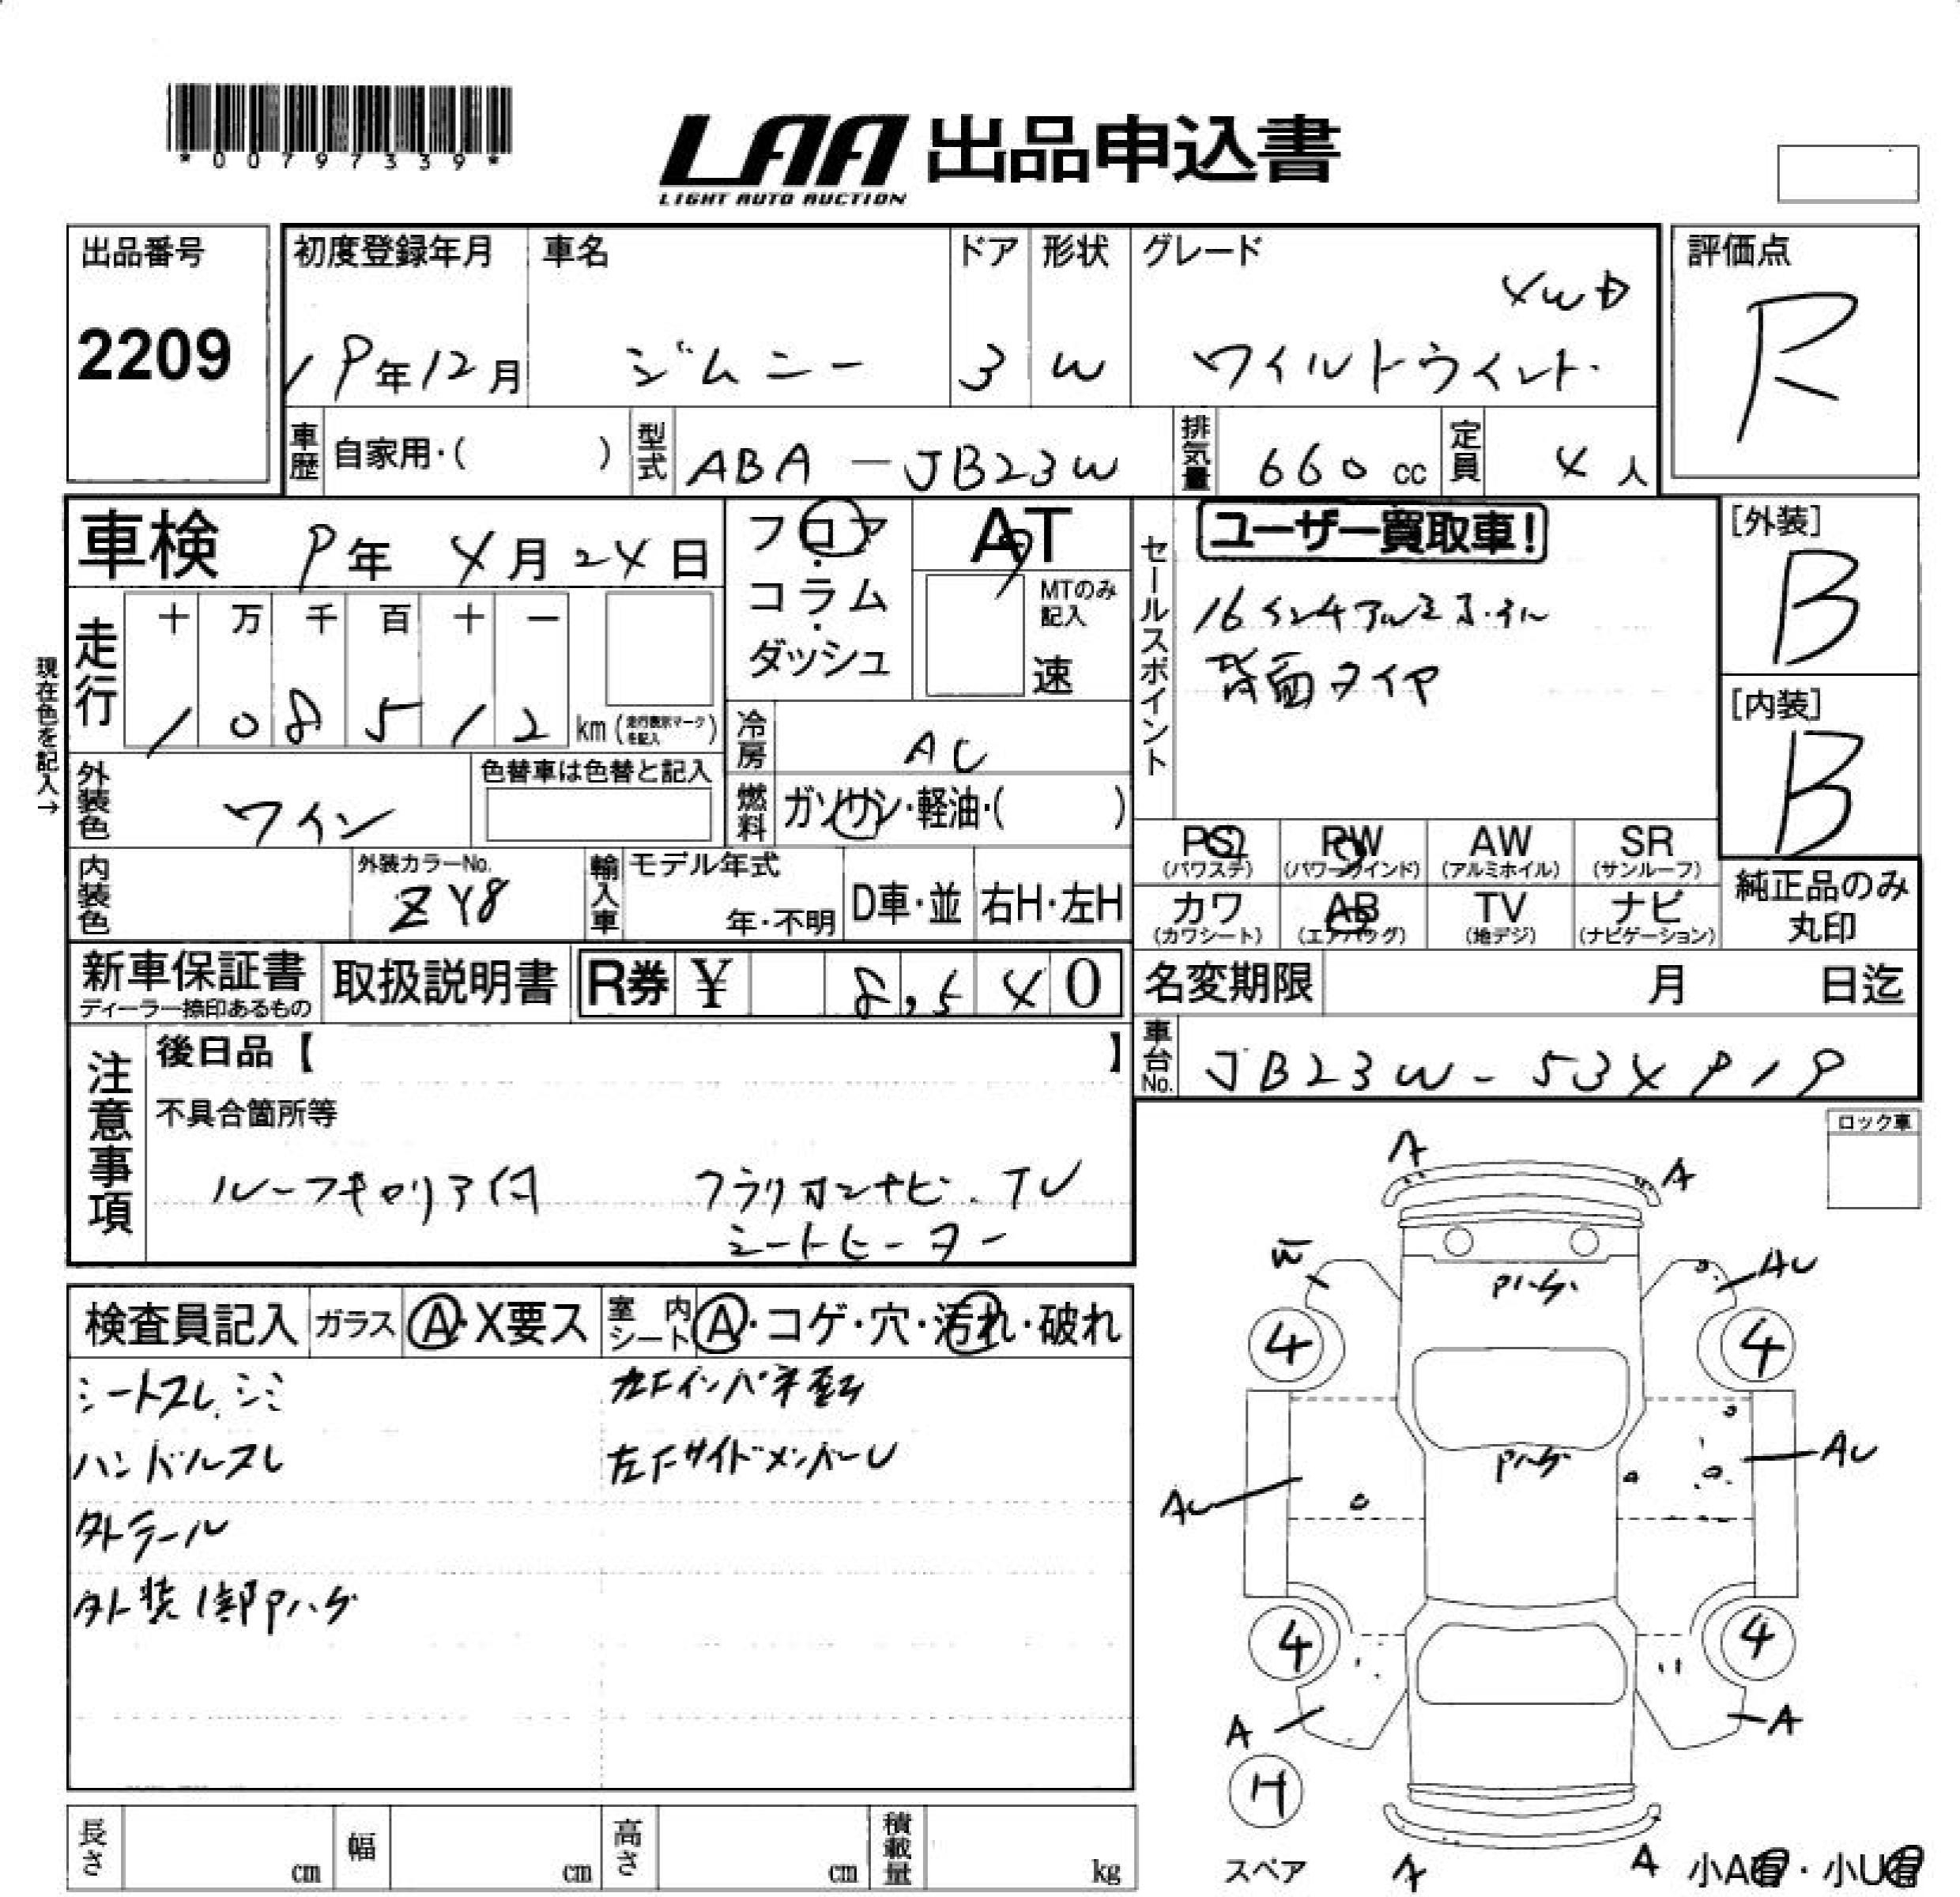 *00797339*
LAA 出品申込書
LIGHT AUTO AUCTION
出品番号
2209
初度登録年月
19年12月
車名
ジムニー
ドア
3
形状
W
グレード
4WD
ワイルドウィンド
評価点
R
車歴 自家用・( )
型式 ABA-JB23W
排気量 660cc
定員 4人
車検 9年4月24日
フロア・コラム・ダッシュ
AT
MTのみ記入
速
セールスポイント
ユーザー買取車!
16インチアルミホイール
背面タイヤ
[外装]
B
[内装]
B
現在色を記入→
走行
十 万 千 百 十 一
1 0 8 5 1 2 km (走行表示マークを記入)
冷房 AC
外装色 ワイン
色替車は色替と記入
燃料 ガソリン・軽油・( )
内装色
外装カラーNo.
ZY8
輸入車 モデル年式
年・不明
D車・並
右H・左H
PS (パワステ)
PW (パワーウインド)
AW (アルミホイル)
SR (サンルーフ)
カワ (カワシート)
AB (エアバッグ)
TV (地デジ)
ナビ (ナビゲーション)
純正品のみ丸印
新車保証書
ディーラー捺印あるもの
取扱説明書
R券 ¥ 8,540
名変期限 月 日迄
車台No. JB23W-534919
注意事項
後日品【 】
不具合箇所等
ルーフキャリア付 クラリオンナビ.TV
シートヒーター
ロック車
検査員記入 ガラス A・X要ス 室内シート A・コゲ・穴・汚れ・破れ
シートスレ、シミ
ハンドルスレ
外テール
外装1部Pハゲ
左Fサイドメンバーし
A
A
W
AU
Pハゲ
4
4
Pハゲ
AU
AU
4
4
A
A
H
スペア
A
A
小A有・小U有
長さ cm
幅 cm
高さ cm
積載量 kg